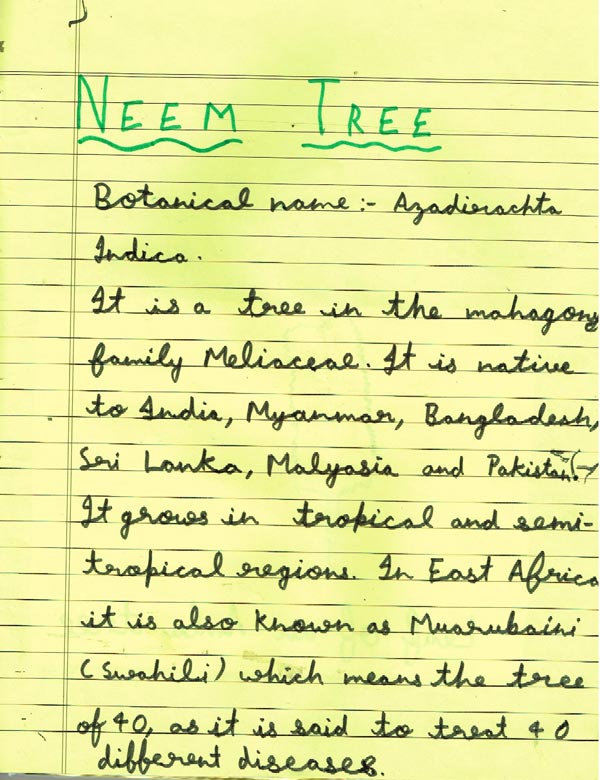 NEEM TREE
Botanical name :- Azadirachta
Indica.
It is a tree in the mahagony
family Meliaceae. It is native
to India, Myanmar, Bangladesh,
Sri Lanka, Malyasia and Pakistan.
It grows in tropical and semi-
tropical regions. In East Africa
it is also known as Muarubaini
(Swahili) which means the tree
of 40, as it is said to treat 40
different diseases.